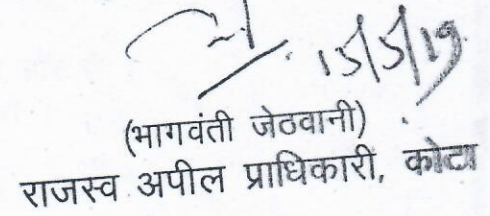 15/5/19
(भागवंती जेठवानी)
राजस्व अपील प्राधिकारी, कोटा